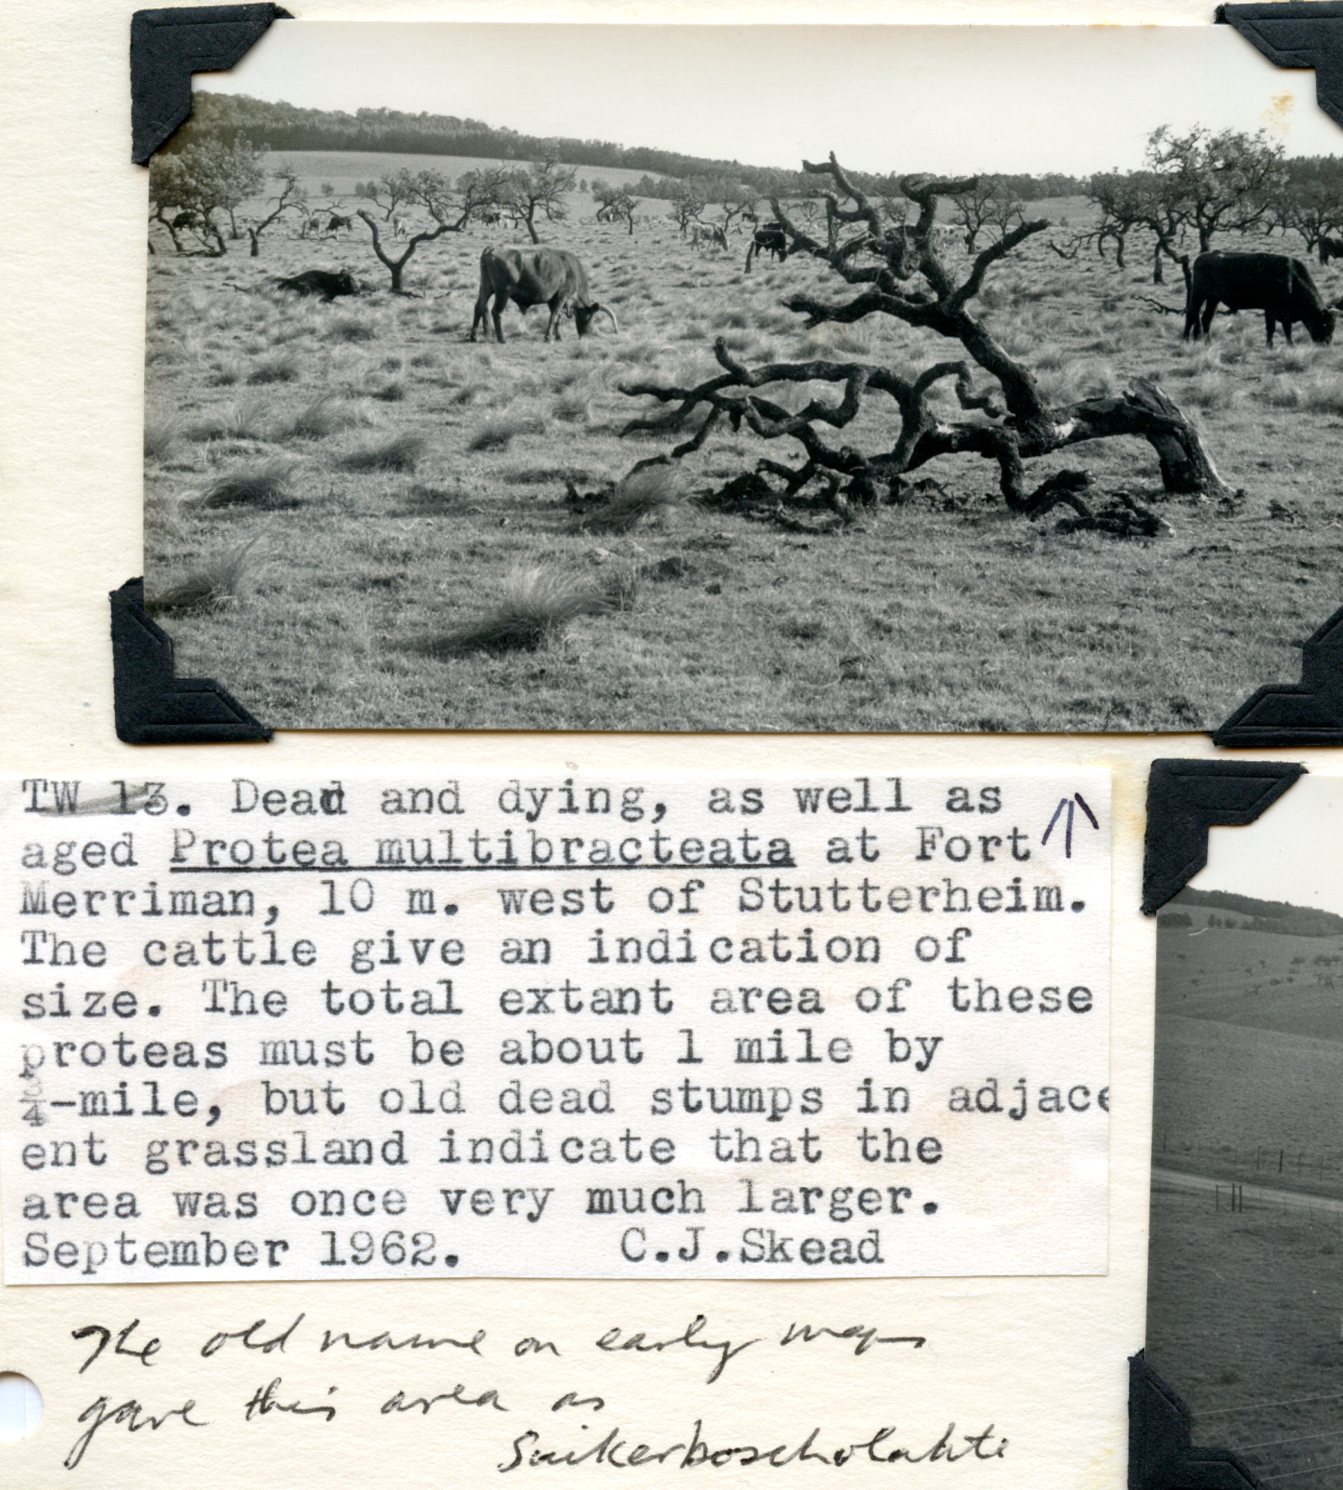 TW 13. Dead and dying, as well as
aged Protea multibracteata at Fort
Merriman, 10 m. west of Stutterheim.
The cattle give an indication of
size. The total extant area of these
proteas must be about 1 mile by
¾-mile, but old dead stumps in adjac
ent grassland indicate that the
area was once very much larger.
September 1962. C.J.Skead
The old name on early maps
gave this area as